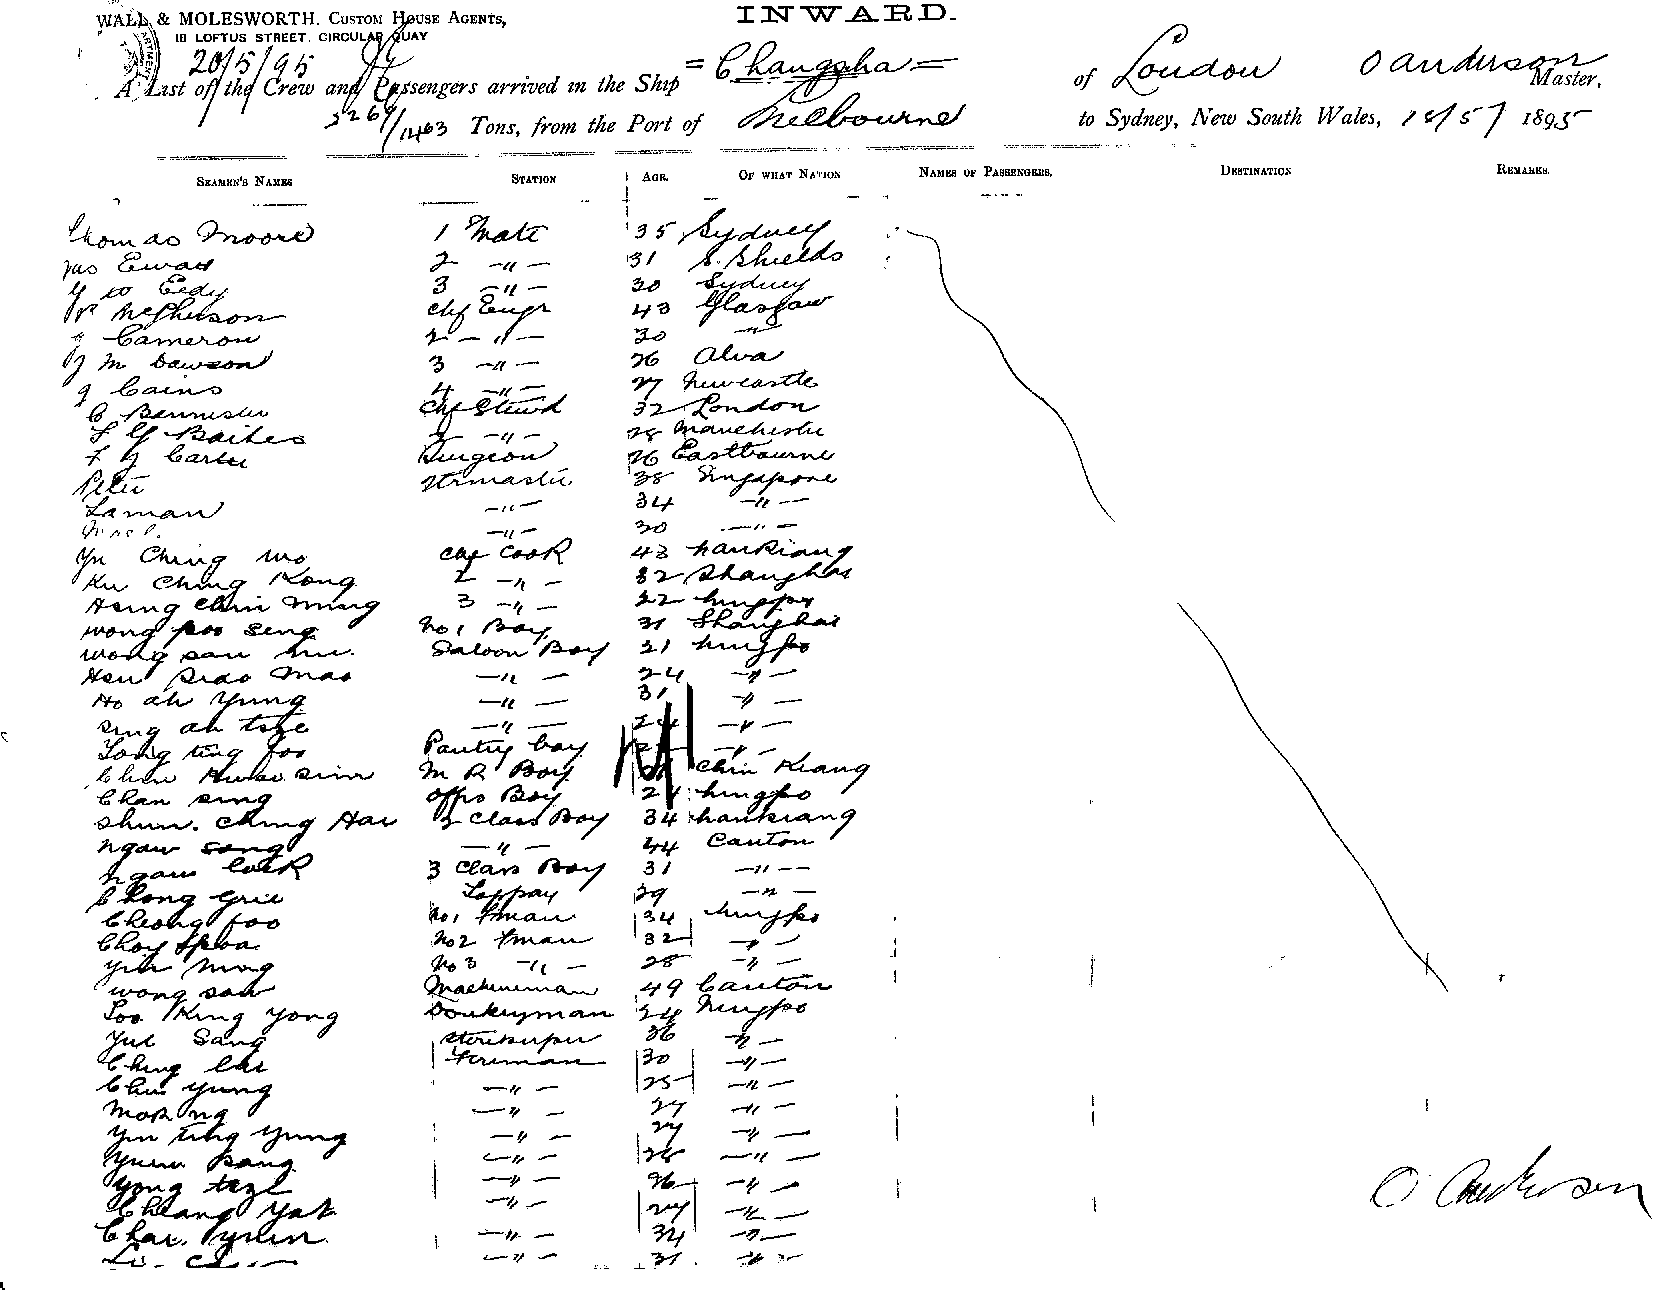 WALL & MOLESWORTH. CUSTOM HOUSE AGENTS,
18 LOFTUS STREET. CIRCULAR QUAY
INWARD.
20/5/95
A List of the Crew and Passengers arrived in the Ship = Changsha = of London O Anderson Master,
3269/1463 Tons, from the Port of Melbourne to Sydney, New South Wales, 18/5/ 1895
SEAMEN'S NAMES STATION AGE. OF WHAT NATION NAMES OF PASSENGERS. DESTINATION REMARKS.
Thomas Moore 1 Mate 35 Sydney
Jas Ewan 2 -"- 31 S. Shields
Eedy 3 -"- 30 Sydney
McPherson Chf Engr 43 Glasgow
Cameron 2 -"- 30 "
J M Dawson 3 -"- 26 Alva
J Cains 4 -"- 27 Newcastle
C Bennister Chf Stewd 32 London
F G Bailes 2 -"- 28 Manchester
F J Carter Surgeon 26 Eastbourne
Peter 38 Singapore
Laman -"- 34 -"-
-"- 30 -"-
Yu Ching wo Chf Cook 43 nankiang
Ku Ching Kong 2 -"- 32 Shanghai
Hsing Chin Ming 3 -"- 22 ningpo
wong poo seng No 1 Boy 31 Shanghai
wong san Saloon Boy 21 ningpo
Hsu Siao Mao -"- 24 -"-
Ho ah Yung -"- 31 -"-
Sing ah tsze -"- 24 -"-
Tong ting foo Pantry boy -"-
Chin M R Boy Chin Kiang
Chan sing offrs Boy 24 ningpo
Shun. Ching Hai 2 Class Boy 34 nankiang
ngaw song -"- 44 Canton
ngaw lock 3 Class Boy 31 -"-
Chong 29 -"-
Cheong foo No 1 fman 34 ningpo
Choy No 2 fman 32 -"-
ming No 3 -"- 28 -"-
wong sow Machineman 49 Canton
Loo King yong Donkeyman 34 Ningpo
Yue Sang storekeeper 36 -"-
Ching lai Fireman 30 -"-
Chu yung -"- 25 -"-
Mok ng -"- 27 -"-
Yu ting yung -"- 27 -"-
Yuen -"- 28 -"-
Yong -"- 26 -"-
Cheang Yak -"- 27 -"-
Chai. yuen -"- 34 -"-
-"- 31 -"-
O Anderson